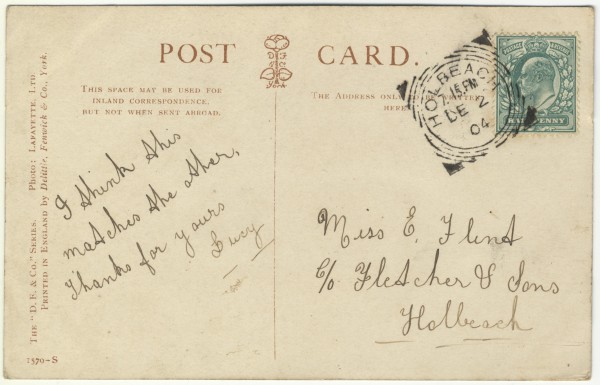 POST CARD.
D.F.
& Co.
York
THIS SPACE MAY BE USED FOR
INLAND CORRESPONDENCE,
BUT NOT WHEN SENT ABROAD.
THE ADDRESS ONLY
HERE
HOLBEACH
7.15 PM
DE 2
04
POSTAGE
HALFPENNY
I think this
matches the other.
Thanks for yours
Lucy
Miss E. Flint
c/o Fletcher & Sons
Holbeach
THE "D.F. & CO." SERIES. PHOTO: LAFAYETTE, LTD
PRINTED IN ENGLAND by Delittle, Fenwick & Co., York.
1370-S